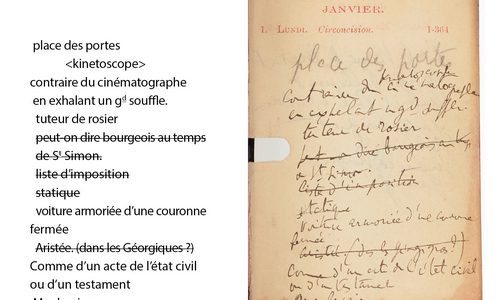 place des portes
<kinetoscope>
contraire du cinématographe
en exhalant un gd souffle.
tuteur de rosier
peut-on dire bourgeois au temps
de St Simon.
liste d'imposition
statique
voiture armoriée d'une couronne
fermée
Aristée. (dans les Géorgiques ?)
Comme d'un acte de l'état civil
ou d'un testament
JANVIER.
1. LUNDI. Circoncision. 1-364
place des portes
kinetoscope
contraire du cinématographe
en exhalant un gd souffle.
tuteur de rosier
peut-on dire bourgeois au temps
de St Simon.
liste d'imposition
statique
voiture armoriée d'une couronne
fermée
Aristée (dans les Géorgiques ?)
Comme d'un acte de l'état civil
ou d'un testament